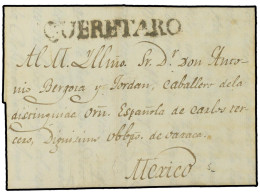 QUERETARO
Al Yll.mo Sr. Dr. don Anto-
nio Bergosa y Jordan, Caballero de la
distinguida Orn. Española de Carlos ter-
cero, Dignísimo Obpo. de Oaxaca,
Mexico